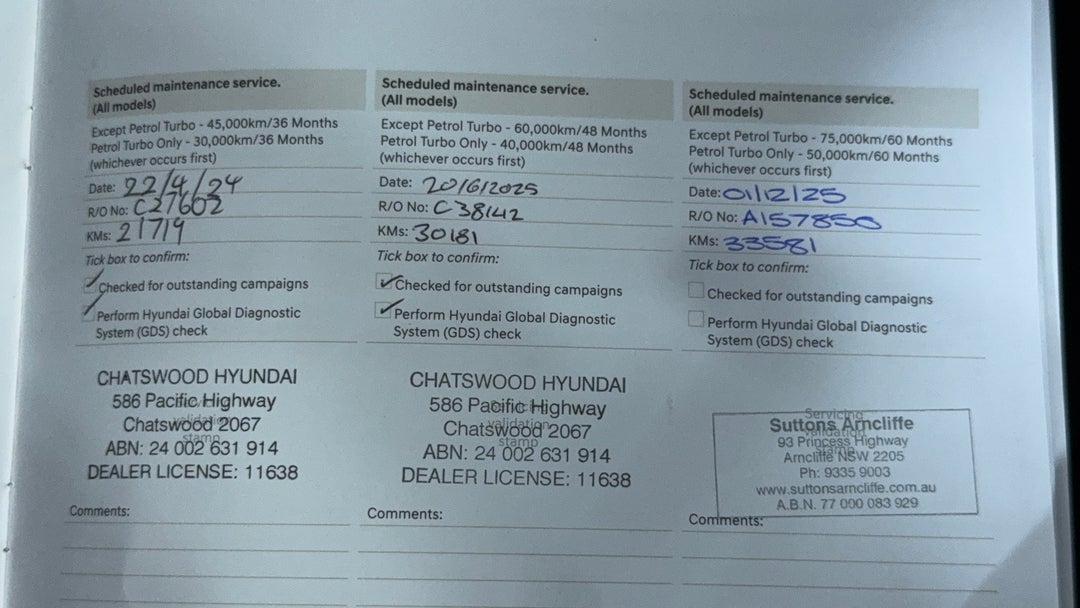 Scheduled maintenance service.
(All models)
Except Petrol Turbo - 45,000km/36 Months
Petrol Turbo Only - 30,000km/36 Months
(whichever occurs first)
Date: 22/4/24
R/O No: C27602
KMs: 21719
Tick box to confirm:
Checked for outstanding campaigns
Perform Hyundai Global Diagnostic
System (GDS) check
CHATSWOOD HYUNDAI
586 Pacific Highway
Chatswood 2067
ABN: 24 002 631 914
DEALER LICENSE: 11638
Comments:
Scheduled maintenance service.
(All models)
Except Petrol Turbo - 60,000km/48 Months
Petrol Turbo Only - 40,000km/48 Months
(whichever occurs first)
Date: 20/6/2025
R/O No: C38142
KMs: 30181
Tick box to confirm:
Checked for outstanding campaigns
Perform Hyundai Global Diagnostic
System (GDS) check
CHATSWOOD HYUNDAI
586 Pacific Highway
Chatswood 2067
validation
stamp
ABN: 24 002 631 914
DEALER LICENSE: 11638
Comments:
Scheduled maintenance service.
(All models)
Except Petrol Turbo - 75,000km/60 Months
Petrol Turbo Only - 50,000km/60 Months
(whichever occurs first)
Date: 01/12/25
R/O No: A157850
KMs: 33581
Tick box to confirm:
Checked for outstanding campaigns
Perform Hyundai Global Diagnostic
System (GDS) check
Servicing
Suttons Arncliffe
93 Princess Highway
Arncliffe NSW 2205
Ph: 9335 9003
www.suttonsarncliffe.com.au
A.B.N. 77 000 083 929
Comments: